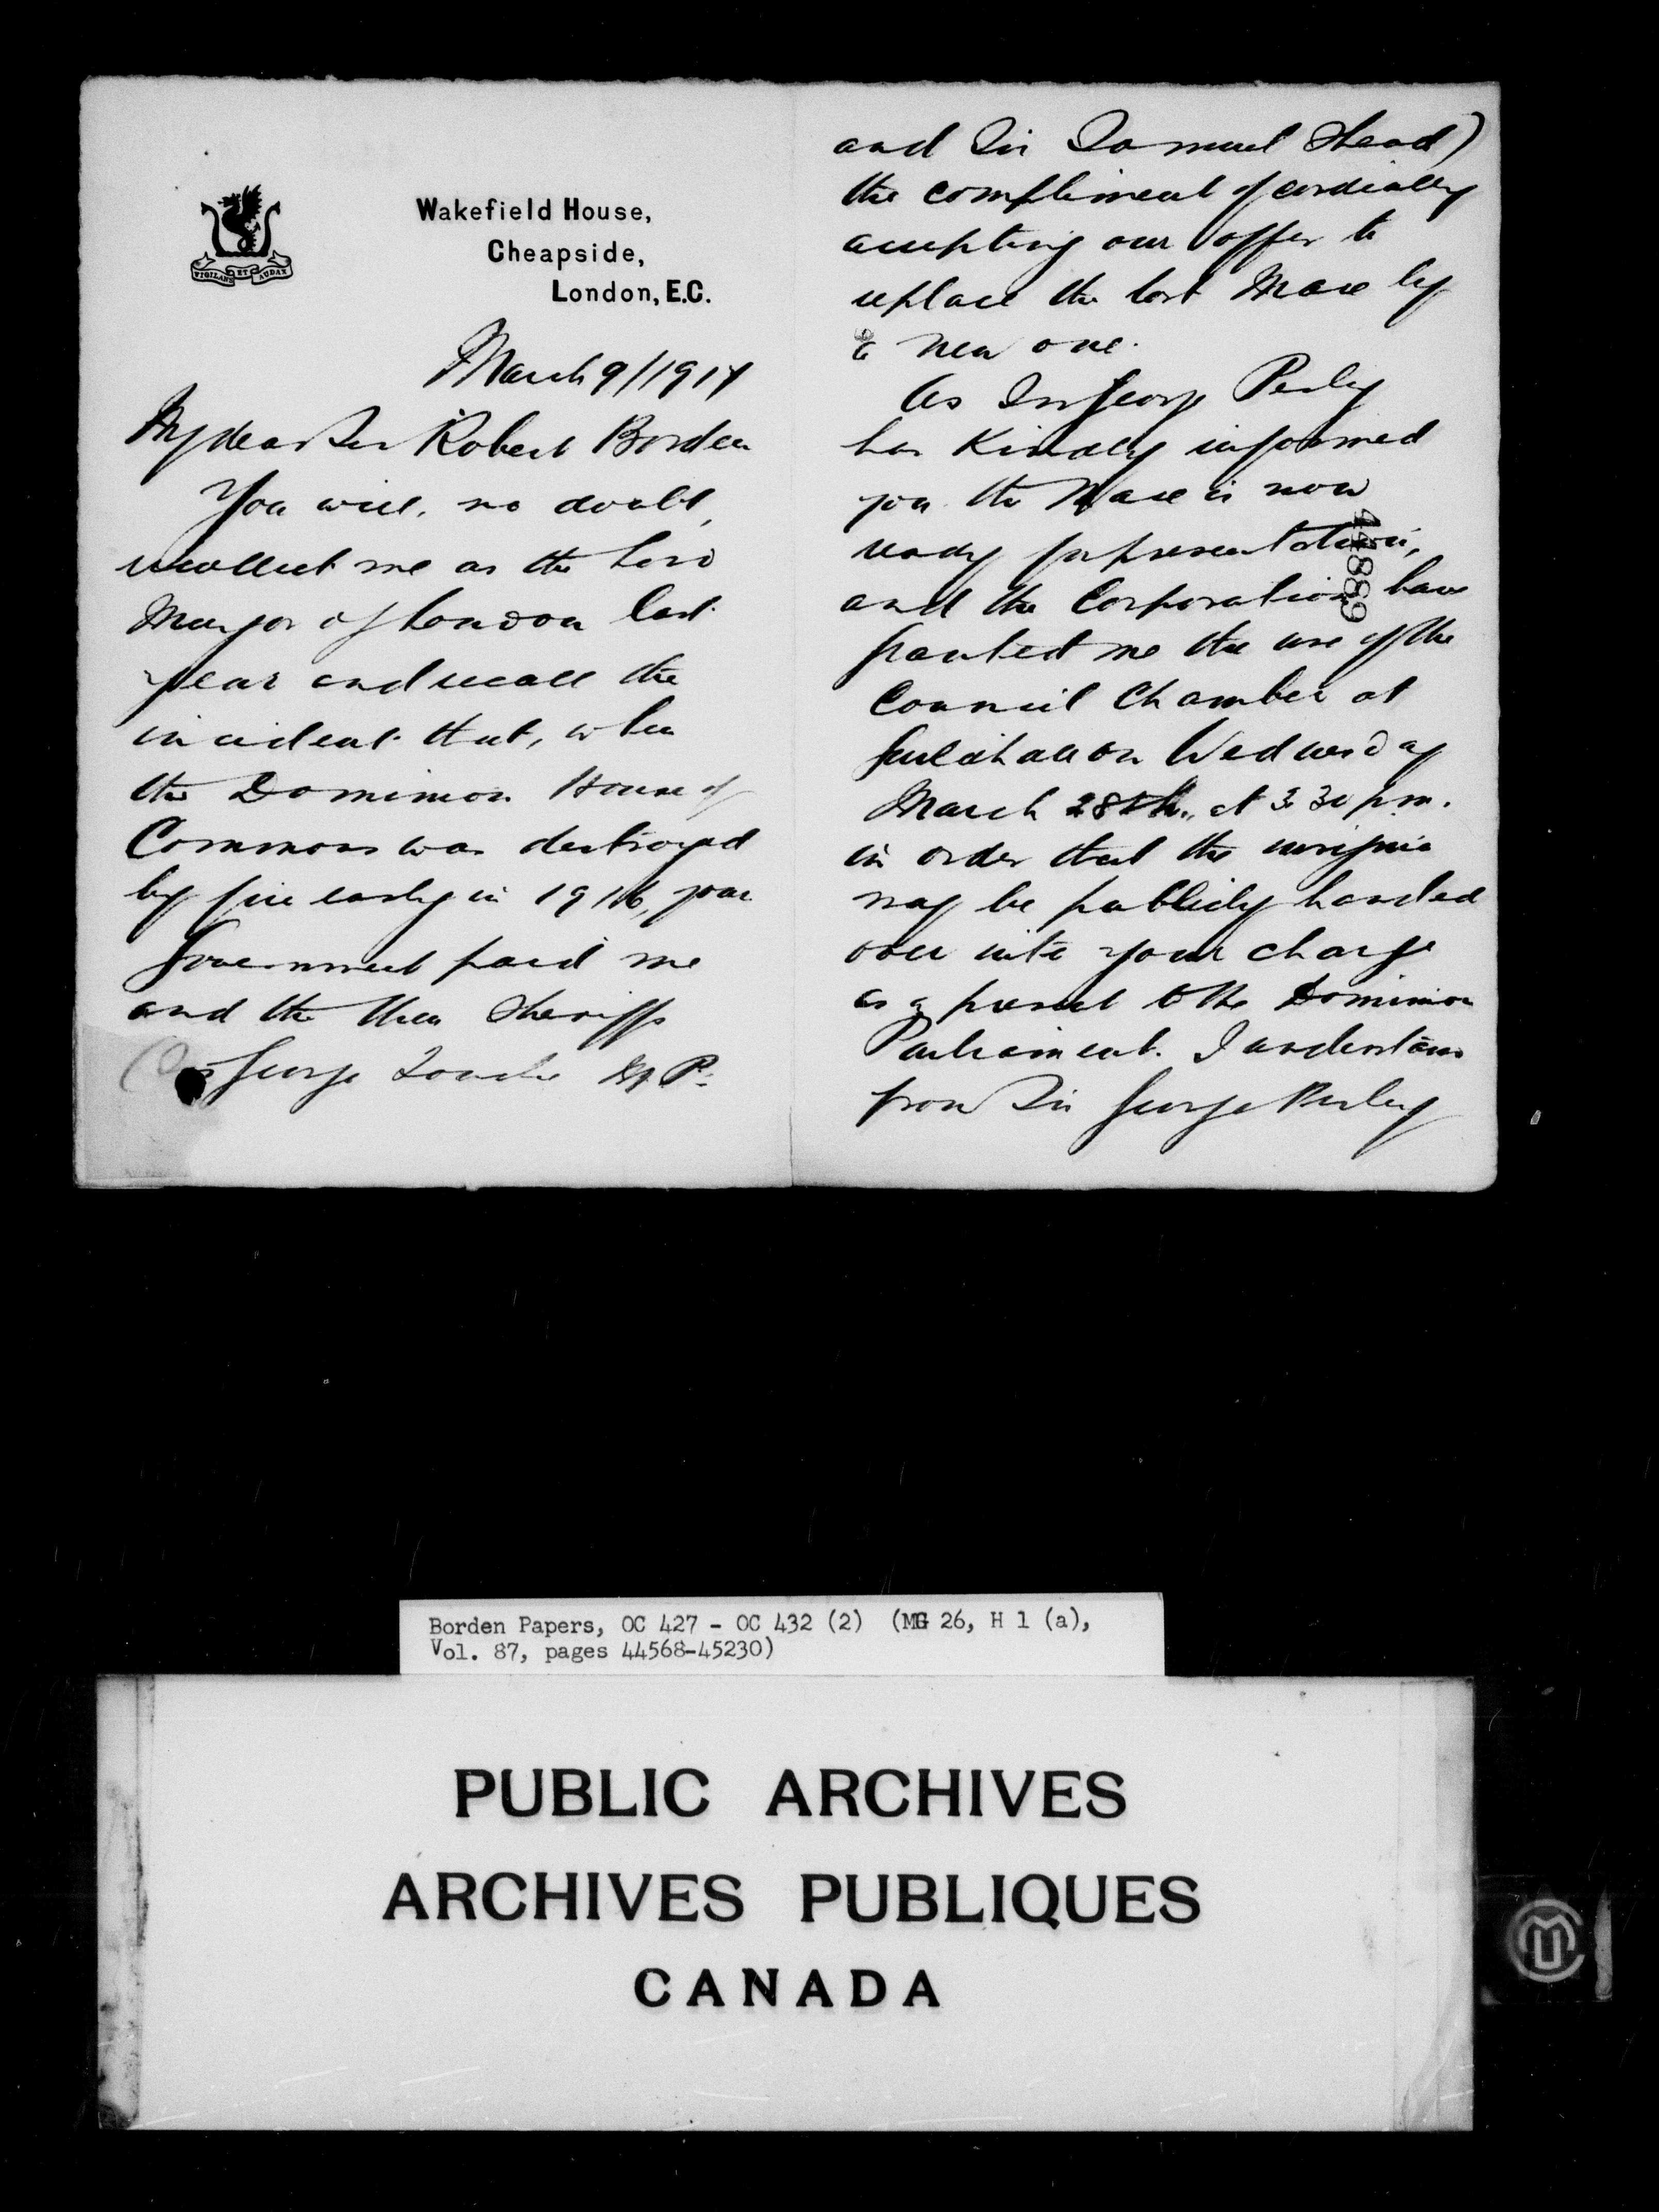 VIGILANS ET AUDAX
Wakefield House,
Cheapside,
London, E.C.
March 9/1917
My dear Sir Robert Borden
You will, no doubt,
recollect me as the Lord
Mayor of London last
year and recall the
incident that, when
the Dominion House of
Commons was destroyed
by fire early in 1916, your
Government paid me
and the then Sheriffs
George Touche M.P.
and Sir Samuel Shead)
the compliment of cordially
accepting our offer to
replace the lost Mace by
a new one.
As Sir George Perley
has kindly informed
you the Mace is now
ready for presentation,
and the Corporation have
granted me the use of the
Council Chamber at
Guildhall on Wednesday
March 28th, at 3 30 p.m.
in order that the insignia
may be publicly handed
over into your charge
as a present to the Dominion
Parliament. I understand
from Sir George Perley
44889
Borden Papers, OC 427 - OC 432 (2) (MG 26, H 1 (a),
Vol. 87, pages 44568-45230)
PUBLIC ARCHIVES
ARCHIVES PUBLIQUES
CANADA